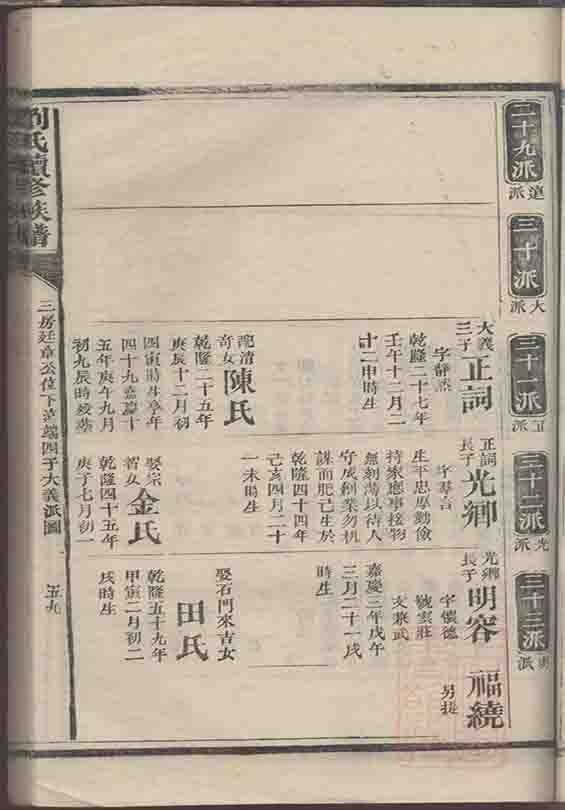 二十九派
遠派
三十派
大派
三十一派
正派
三十二派
光派
三十三派
明派
大義
三子
正詞
字靜
乾隆二十七年
壬午十二月二
十二申時生
娶清
奇女
陳氏
乾隆二十五年
庚辰十二月初
四寅時生享年
四十九嘉慶十
五年庚午九月
初九辰時歿葬
正詞
長子
光卿
字羣言
生平忠厚勤儉
持家應事接物
無刻薄以待人
守成創業勿机
謀而肥己生於
乾隆四十四年
己亥四月二十
一未時生
娶宗
智女
金氏
乾隆四十五年
庚子七月初一
光卿
長子
明容
字懷德
號雲莊
文兼武
嘉慶三年戊午
三月二十一戌
時生
娶石門來吉女
田氏
乾隆五十九年
甲寅二月初二
戌時生
福繞
另提
劉氏續修族譜
三房廷章公位下
四子大義派圖
五九